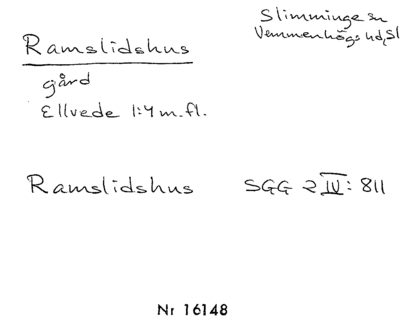 Slimminge sn
Vemmenhögs hd, Sk
Ramslidshus
gård
Ellvede 1:4 m.fl.
Ramslidshus SGG 2 IV: 811
Nr 16148